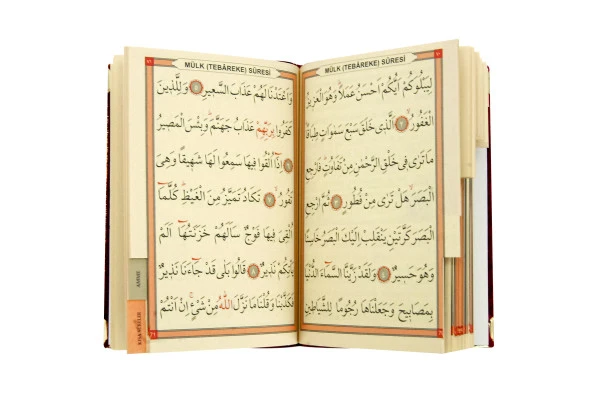 MÜLK (TEBÂREKE) SÛRESİ
لِيَبْلُوَكُمْ اَيُّكُمْ اَحْسَنُ عَمَلًاۜ وَهُوَ الْعَزِيزُ
الْغَفُورُۙ ﴿٢﴾ اَلَّذِي خَلَقَ سَبْعَ سَمٰوَاتٍ طِبَاقًاۜ
مَا تَرٰى فِي خَلْقِ الرَّحْمٰنِ مِنْ تَفَاوُتٍۜ فَارْجِعِ
الْبَصَرَۙ هَلْ تَرٰى مِنْ فُطُورٍ ﴿٣﴾ ثُمَّ ارْجِعِ
الْبَصَرَ كَرَّتَيْنِ يَنْقَلِبْ اِلَيْكَ الْبَصَرُ خَاسِئًا
وَهُوَ حَسِيرٌ ﴿٤﴾ وَلَقَدْ زَيَّنَّا السَّمَٓاءَ الدُّنْيَا
بِمَصَابِيحَ وَجَعَلْنَاهَا رُجُومًا لِلشَّيَاطِينِ
MÜLK (TEBÂREKE) SÛRESİ
وَاَعْتَدْنَا لَهُمْ عَذَابَ السَّعِيرِ ﴿٥﴾ وَلِلَّذِينَ
كَفَرُوا بِرَبِّهِمْ عَذَابُ جَهَنَّمَۜ وَبِئْسَ الْمَصِيرُ
﴿٦﴾ اِذَٓا اُلْقُوا فِيهَا سَمِعُوا لَهَا شَهِيقًا وَهِيَ
تَفُورُۙ ﴿٧﴾ تَكَادُ تَمَيَّزُ مِنَ الْغَيْظِۜ كُلَّمَٓا
اُلْقِيَ فِيهَا فَوْجٌ سَاَلَهُمْ خَزَنَتُهَٓا اَلَمْ
يَأْتِكُمْ نَذِيرٌ ﴿٨﴾ قَالُوا بَلٰى قَدْ جَٓاءَنَا نَذِيرٌ
فَكَذَّبْنَا وَقُلْنَا مَا نَزَّلَ اللّٰهُ مِنْ شَيْءٍۚ اِنْ اَنْتُمْ
AMME